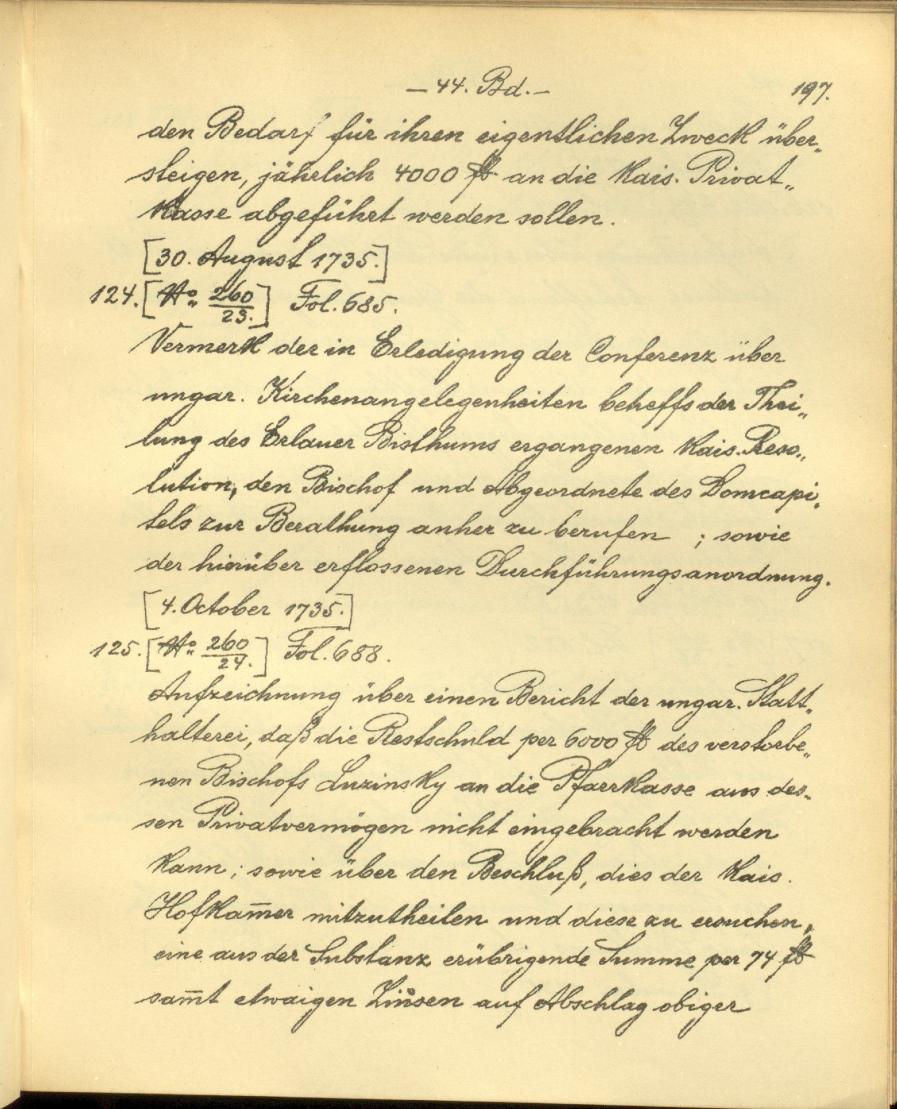 – 44. Bd. –
197.
den Bedarf für ihren eigentlichen Zweck über„
steigen, jährlich 4000 fl an die Kais. Privat„
Kasse abgeführt werden sollen.
[30. August 1735.]
124. [No. 260/23.] Fol. 685.
Vermerk der in Erledigung der Conferenz über
ungar. Kirchenangelegenheiten beheffs der Thei„
lung des Erlauer Bisthums ergangenen Kais. Reso„
lution, den Bischof und Abgeordnete des Domcapi„
tels zur Berathung anher zu berufen ; sowie
der hierüber erflossenen Durchführungsanordnung.
[4. October 1735.]
125. [No. 260/24.] Fol. 688.
Aufzeichnung über einen Bericht der ungar. Statt„
halterei, daß die Restschuld per 6000 fl des verstorbe„
nen Bischofs Luzinsky an die Pfarrkasse aus des„
sen Privatvermögen nicht eingebracht werden
kann; sowie über den Beschluß, dies der Kais.
Hofkam̅er mitzutheilen und diese zu ersuchen,
eine aus der Substanz erübrigende Summe per 74 fl
sam̅t etwaigen Zinsen auf Abschlag obiger